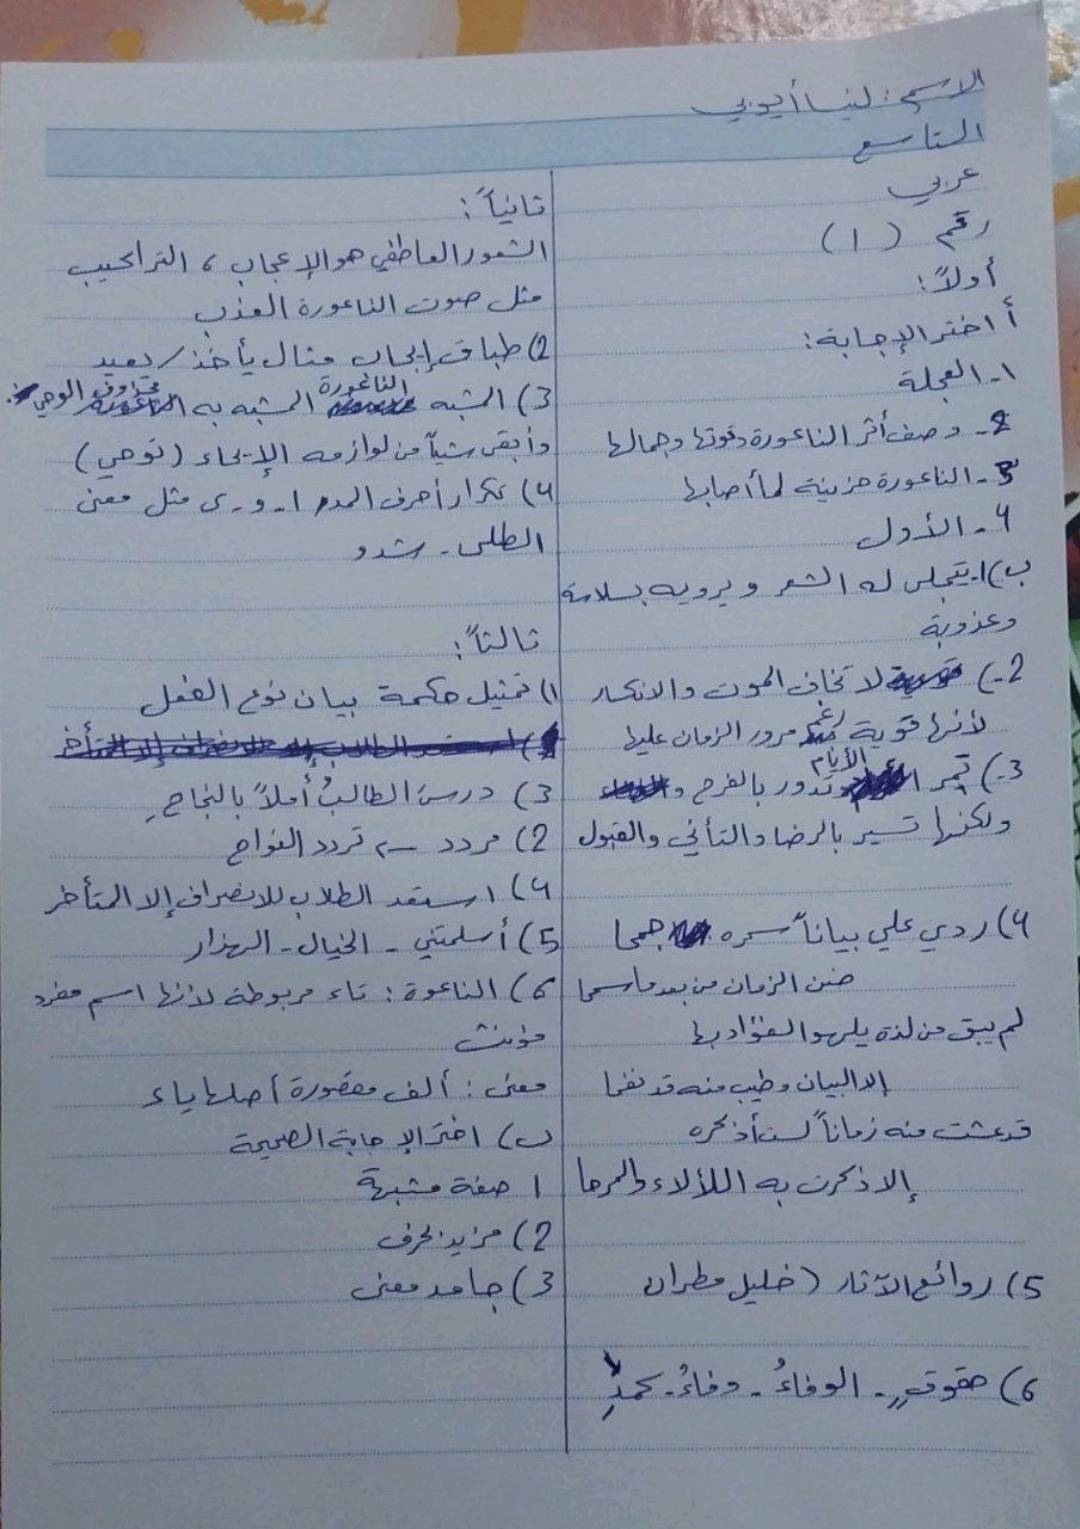 الاسم: لنسا أيوبي
التاسع
عربي
رقم (١)
أولاً:
أ اختر الإجابة:
١- العجلة
2- وصف أثر الناعورة وقوتها وجمالها
3- الناعورة حزينة لما أصابها
٤- الأول
ب) ١- يتجلى له الشعر ويرويه بسلاسة
وعذوبة
2-) لا تخاف الموت والانكسار
لأنها قوية رغم مرور الزمان عليها
3-) تمر الأيام وتدور بالفرح و
ولكنها تسير بالرضا والتأني والقبول
٤) ردي علي بياناً سره جمحا
ضنن الزمان من بعد ما سمحا
لم يبق من لذة يلهو الفؤاد بها
إلا البيان وطيب منه قد نفحا
قد عشت منه زماناً لست أذكره
إلا ذكرت به اللألاء والمرحا
5) روائع الآثار (خليل مطران
6) حقوقٍ - الوفاءُ - وفاءُ - بحمدِ
ثانياً:
الشعور العاطفي هو الإعجاب، التراكيب
مثل صوت الناعورة العذب
2) طباق إيجاب مثال يأخذ / يعيد
3) المشبه الناعورة المشبه به محذوف الوحي
وأبقى شيئاً من لوازمه الإيحاء (توحي)
٤) تكرار أحرف المد ا - و - ى مثل معنى
الطلى - شدو
ثالثاً:
١) تمثيل حكمة بيان نوع الفعل
3) درسَ الطالبُ أملاً بالنجاحِ
2) مردد ← تردد النواح
٤) استعد الطلاب للانصراف إلا المتأخر
5) أسلمتني - الخيال - الهزار
6) الناعوة: تاء مربوطة لأنها اسم مفرد
مؤنث
معنى: ألف مقصورة أصلها ياء
ب) اختر الإجابة الصحيحة
١ صفة مشبهة
2) مزيد بحرف
3) جامد معنى